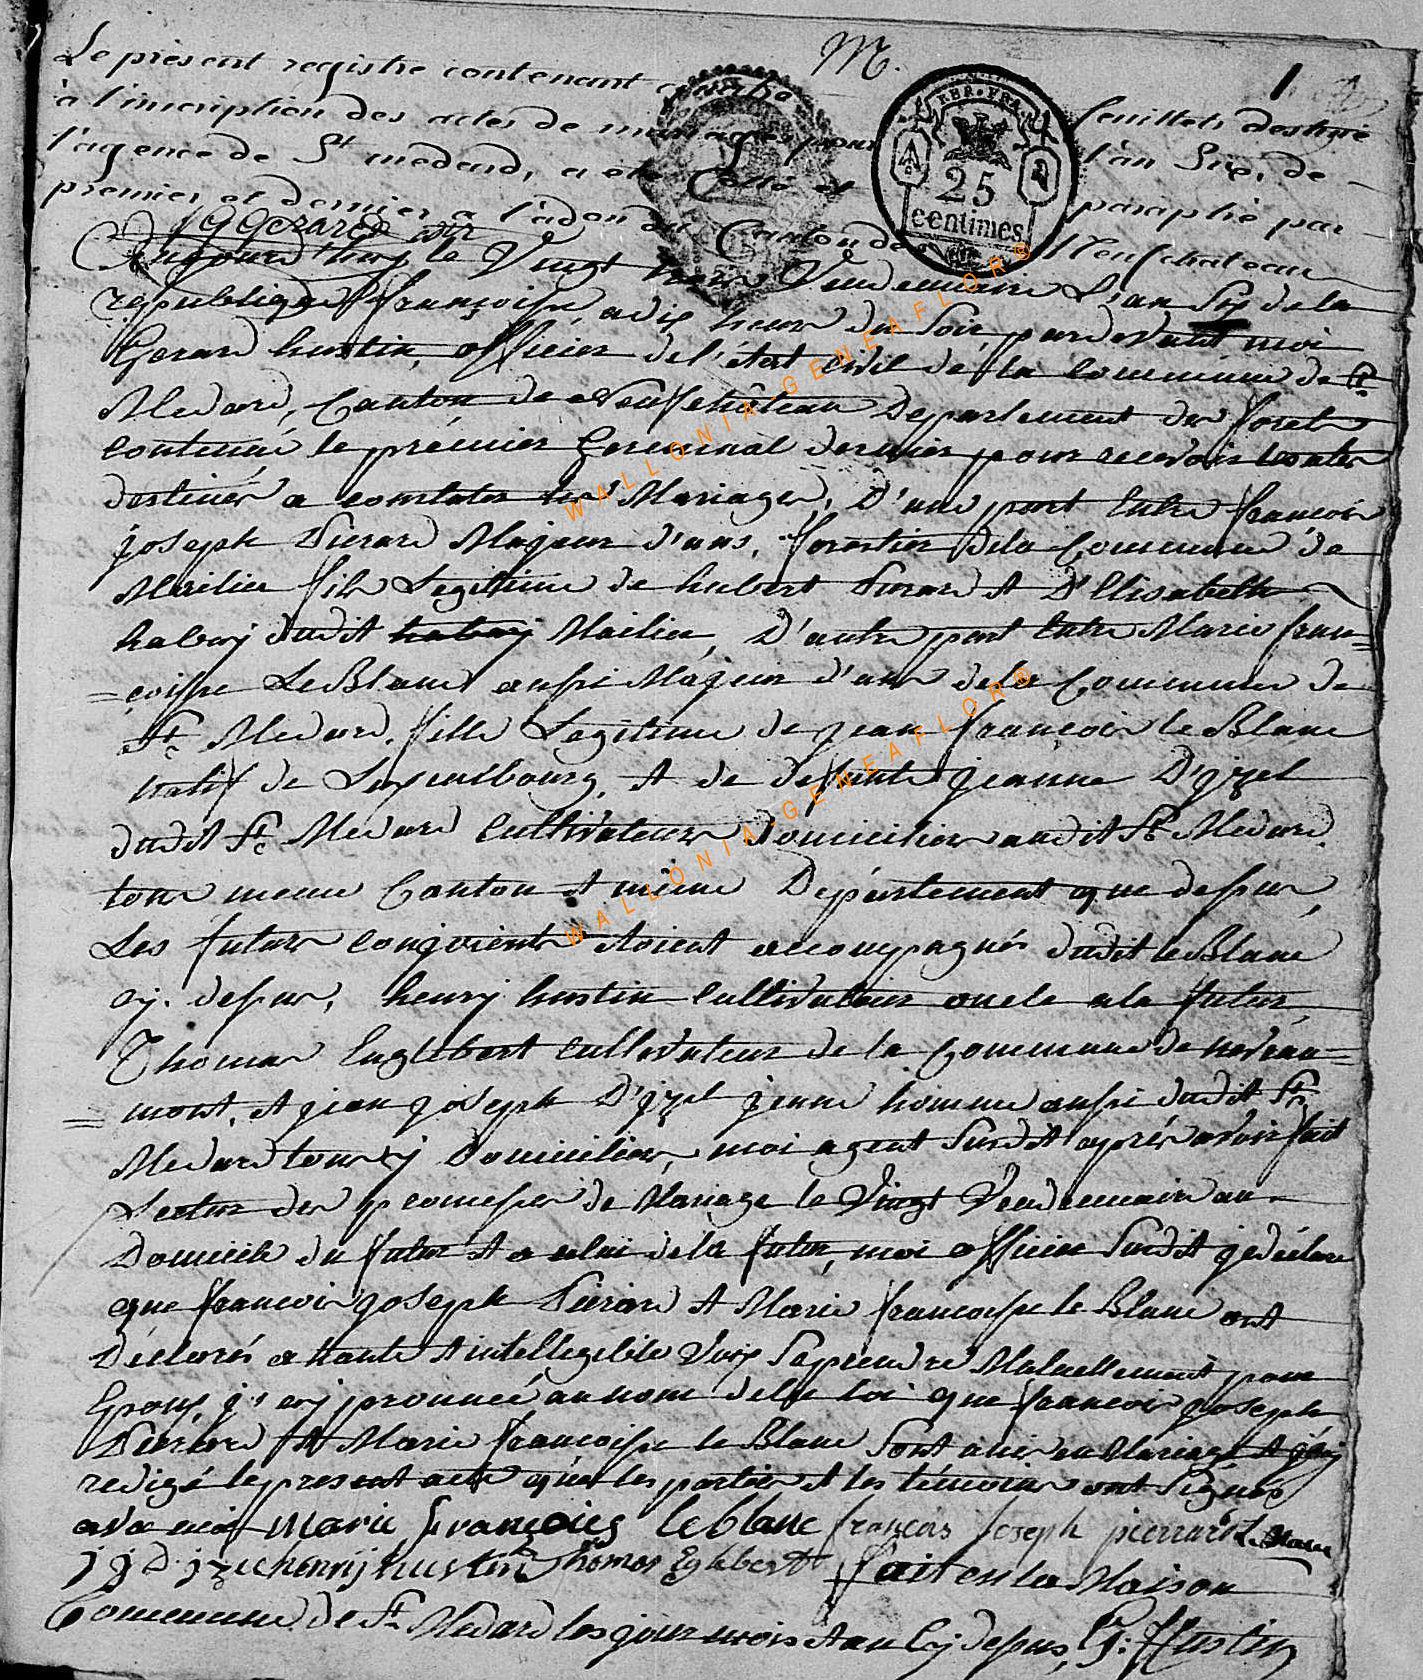 M.
1
Le présent registre contenant feuillets destiné
à l'inscription des actes de mariages pour l'an Six, de
l'agence de St medard, a été Cotté et paraphé par
premier et dernier a l'adon du Canton de Neufchateau
JG Gerard
REP. FRA.
25
centimes
Aujourd'huy le Vingt Vendemiaire L'an Six de la
republique françoise, a dix heure du Soir, pardevant moi
Gerard hustin, officier de l'état civil de la Commune de St
Medard, Canton de Neufchâteau Departement des foret
le prémier Germinal dernier pour recevoir les actes
destinés a constater les Mariages, D'une part Entre françois
joseph Pierard Majeur d'ans, forestier de la Commune de
Mailieu fils Legitime de hubert Pierard et D'Elisabeth
habaij dudit habaij Mailieu, D'autre part Entre Marie fran=
=coisse LeBlanc aussi Majeur d'ans de la Commune de
St Medard, fille Legitime de jean françois le Blanc
natif de Luxembourg, et de defunte jeanne D'jzel
dudit St Medard Cultivateur domicilier audit St Medard
tous meme Canton et mème Département que dessus,
Les futurs conjoients étoient accompagnés dudit leBlanc
cy dessus, henry hustin Cultivateur oncle a la future,
Thomas Englebert cultivateur de la Commune de
mont, et jean joseph D'jzel jeune homme aussi dudit St
Medard tous cy Domicilier, moi agent Susdit aprés avoir fait
Lecture des promesses de Mariage le Vingt Vendemiaire au
Domicile du futur et a celui de la future, moi officier Susdit je déclare
que francois joseph Pierard et Marie francoisse le Blanc ont
Déclarés a haute et intellegible Voix Se prendre Mutuellement pour
Epoux, j'ai prononcé au nom de la Loi que francois joseph
Pierard et Marie francoisse le Blanc Sont unis en Mariage et j'ai
redigé le present acte que les parties et les témoins ont Signés
avec moi Marie françoies leblanc françois joseph pierrard Le Blanc
j j D jzel henrij hustin Thomas Eglebert fait en la Maison
Commune de St Medard les jour mois et an Cy dessus, G: Hustin
WALLONIA-GENEAFLOR©
WALLONIA-GENEAFLOR©